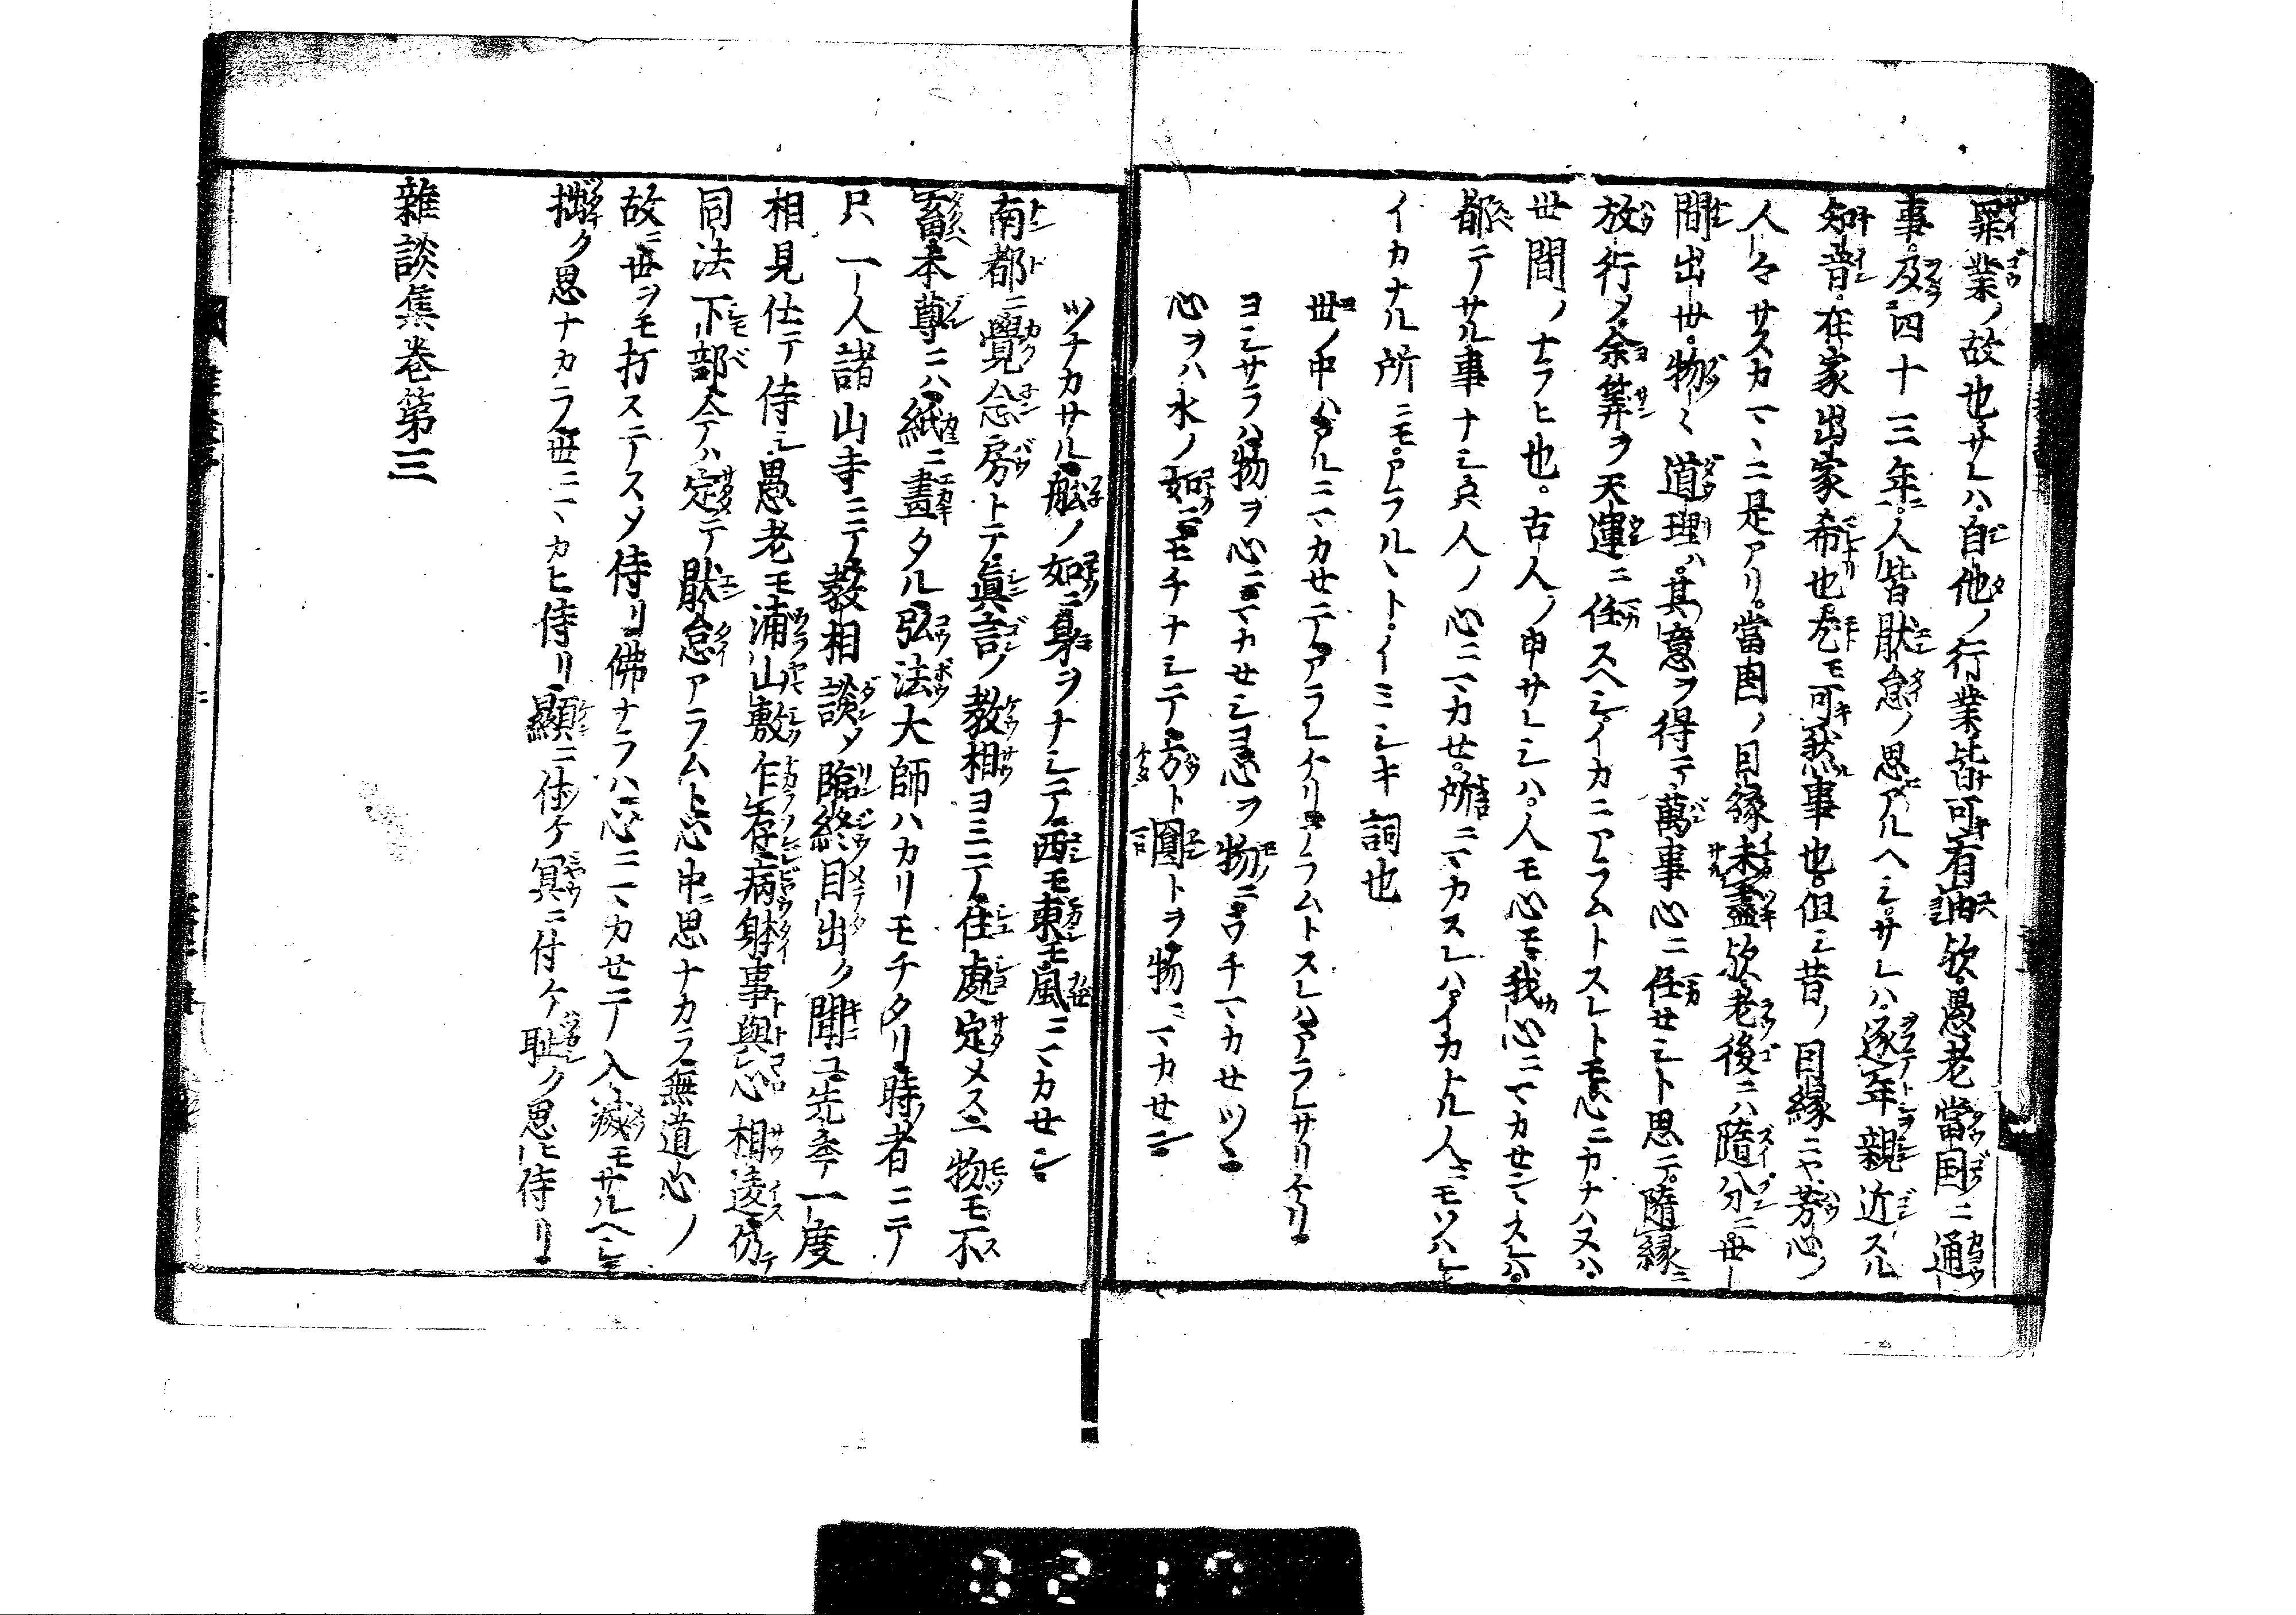 罪業ノ故也サレハ自他ノ行業皆可有油歟愚老當国ニ通
事及四十三年人皆猒怠ノ思アルヘシサレハ逐年親近スル
知音在家出家希也尤モ可然事也但シ昔ノ因縁ニヤ芳心ノ
人々サスカマヽニ是アリ當国ノ因縁未盡歟老後ニハ隨分ニ世
間出世物ミ道理ハ其意ヲ得テ萬事心ニ任セシト思テ隨縁ニ
放行ノ余筭ヲ天運ニ任スヘシイカニアラムトスレトモ心ニカナハヌハ
世間ノナラヒ也古人ノ申サレシハ人モ心モ我心ニマカセシスレハ
都テサル事ナシ只人ノ心ニマカセ所ニマカスレハイカナル人ニモソハレ
イカナル所ニモアラルヽトイミシキ詞也
世ノ中ハアルニマカセテアラレケリアラムトスレハアラレサリケリ
ヨシサラハ物ヲ心ニマカセシヨ心ヲ物ニウチマカセツヽ
心ヲハ水ノ如ニモチナシテ方ト圓トヲ物ニマカセン
ツナカサル舩ノ如ニ身ヲナシテ西モ東モ風ニマカセン
南都ニ覺念房トテ眞言ノ教相ヨミニテ住處定メス二物モ不
畜本尊ニハ紙ニ畫タル弘法大師ハカリモチタリ時者ニテ
只一人諸山寺ニテ教相談メ臨終目出ク聞ユ先季一度
相見仕テ侍シ愚老モ浦山敷乍存病躰事與心相違仍テ
同法下部今テハ定テ猒怠アラムト心中ニ思ナカラ無道心ノ
故ニ世ヲモ打ステスメ侍リ佛ナラハ心ニマカセテ入滅モサルヘシ
拙ク思ナカラ世ニマカヒ侍リ顯ニ付ケ冥ニ付ケ耻ク思ヒ侍リ
雜談集巻第三
0217